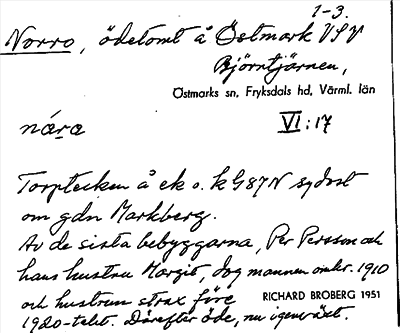 1-3.
Norro, ödetomt å Östmark VSV
Björntjärnen,
Östmarks sn, Fryksdals hd, Värml. län
nɷra
VI:17
Torptecken å ek o. k G87N sydost
om gdn Markberg.
Av de sista bebyggarna, Per Persson och
hans hustru Margit, dog mannen omkr. 1910
och hustrun strax före
RICHARD BROBERG 1951
1920-talet. Därefter öde, nu igenväxt.